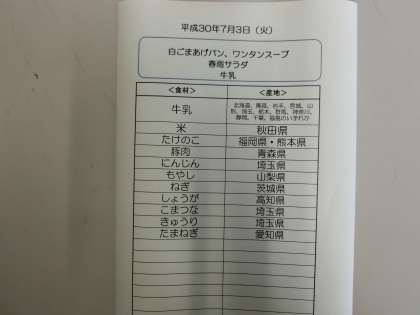 平成30年7月3日（火）
白ごまあげパン、ワンタンスープ
春雨サラダ
牛乳
＜食材＞ ＜産地＞
牛乳 北海道、青森、岩手、宮城、山形、埼玉、栃木、群馬、神奈川、静岡、千葉、福島のいずれか
米 秋田県
たけのこ 福岡県・熊本県
豚肉 青森県
にんじん 埼玉県
もやし 山梨県
ねぎ 茨城県
しょうが 高知県
こまつな 埼玉県
きゅうり 埼玉県
たまねぎ 愛知県